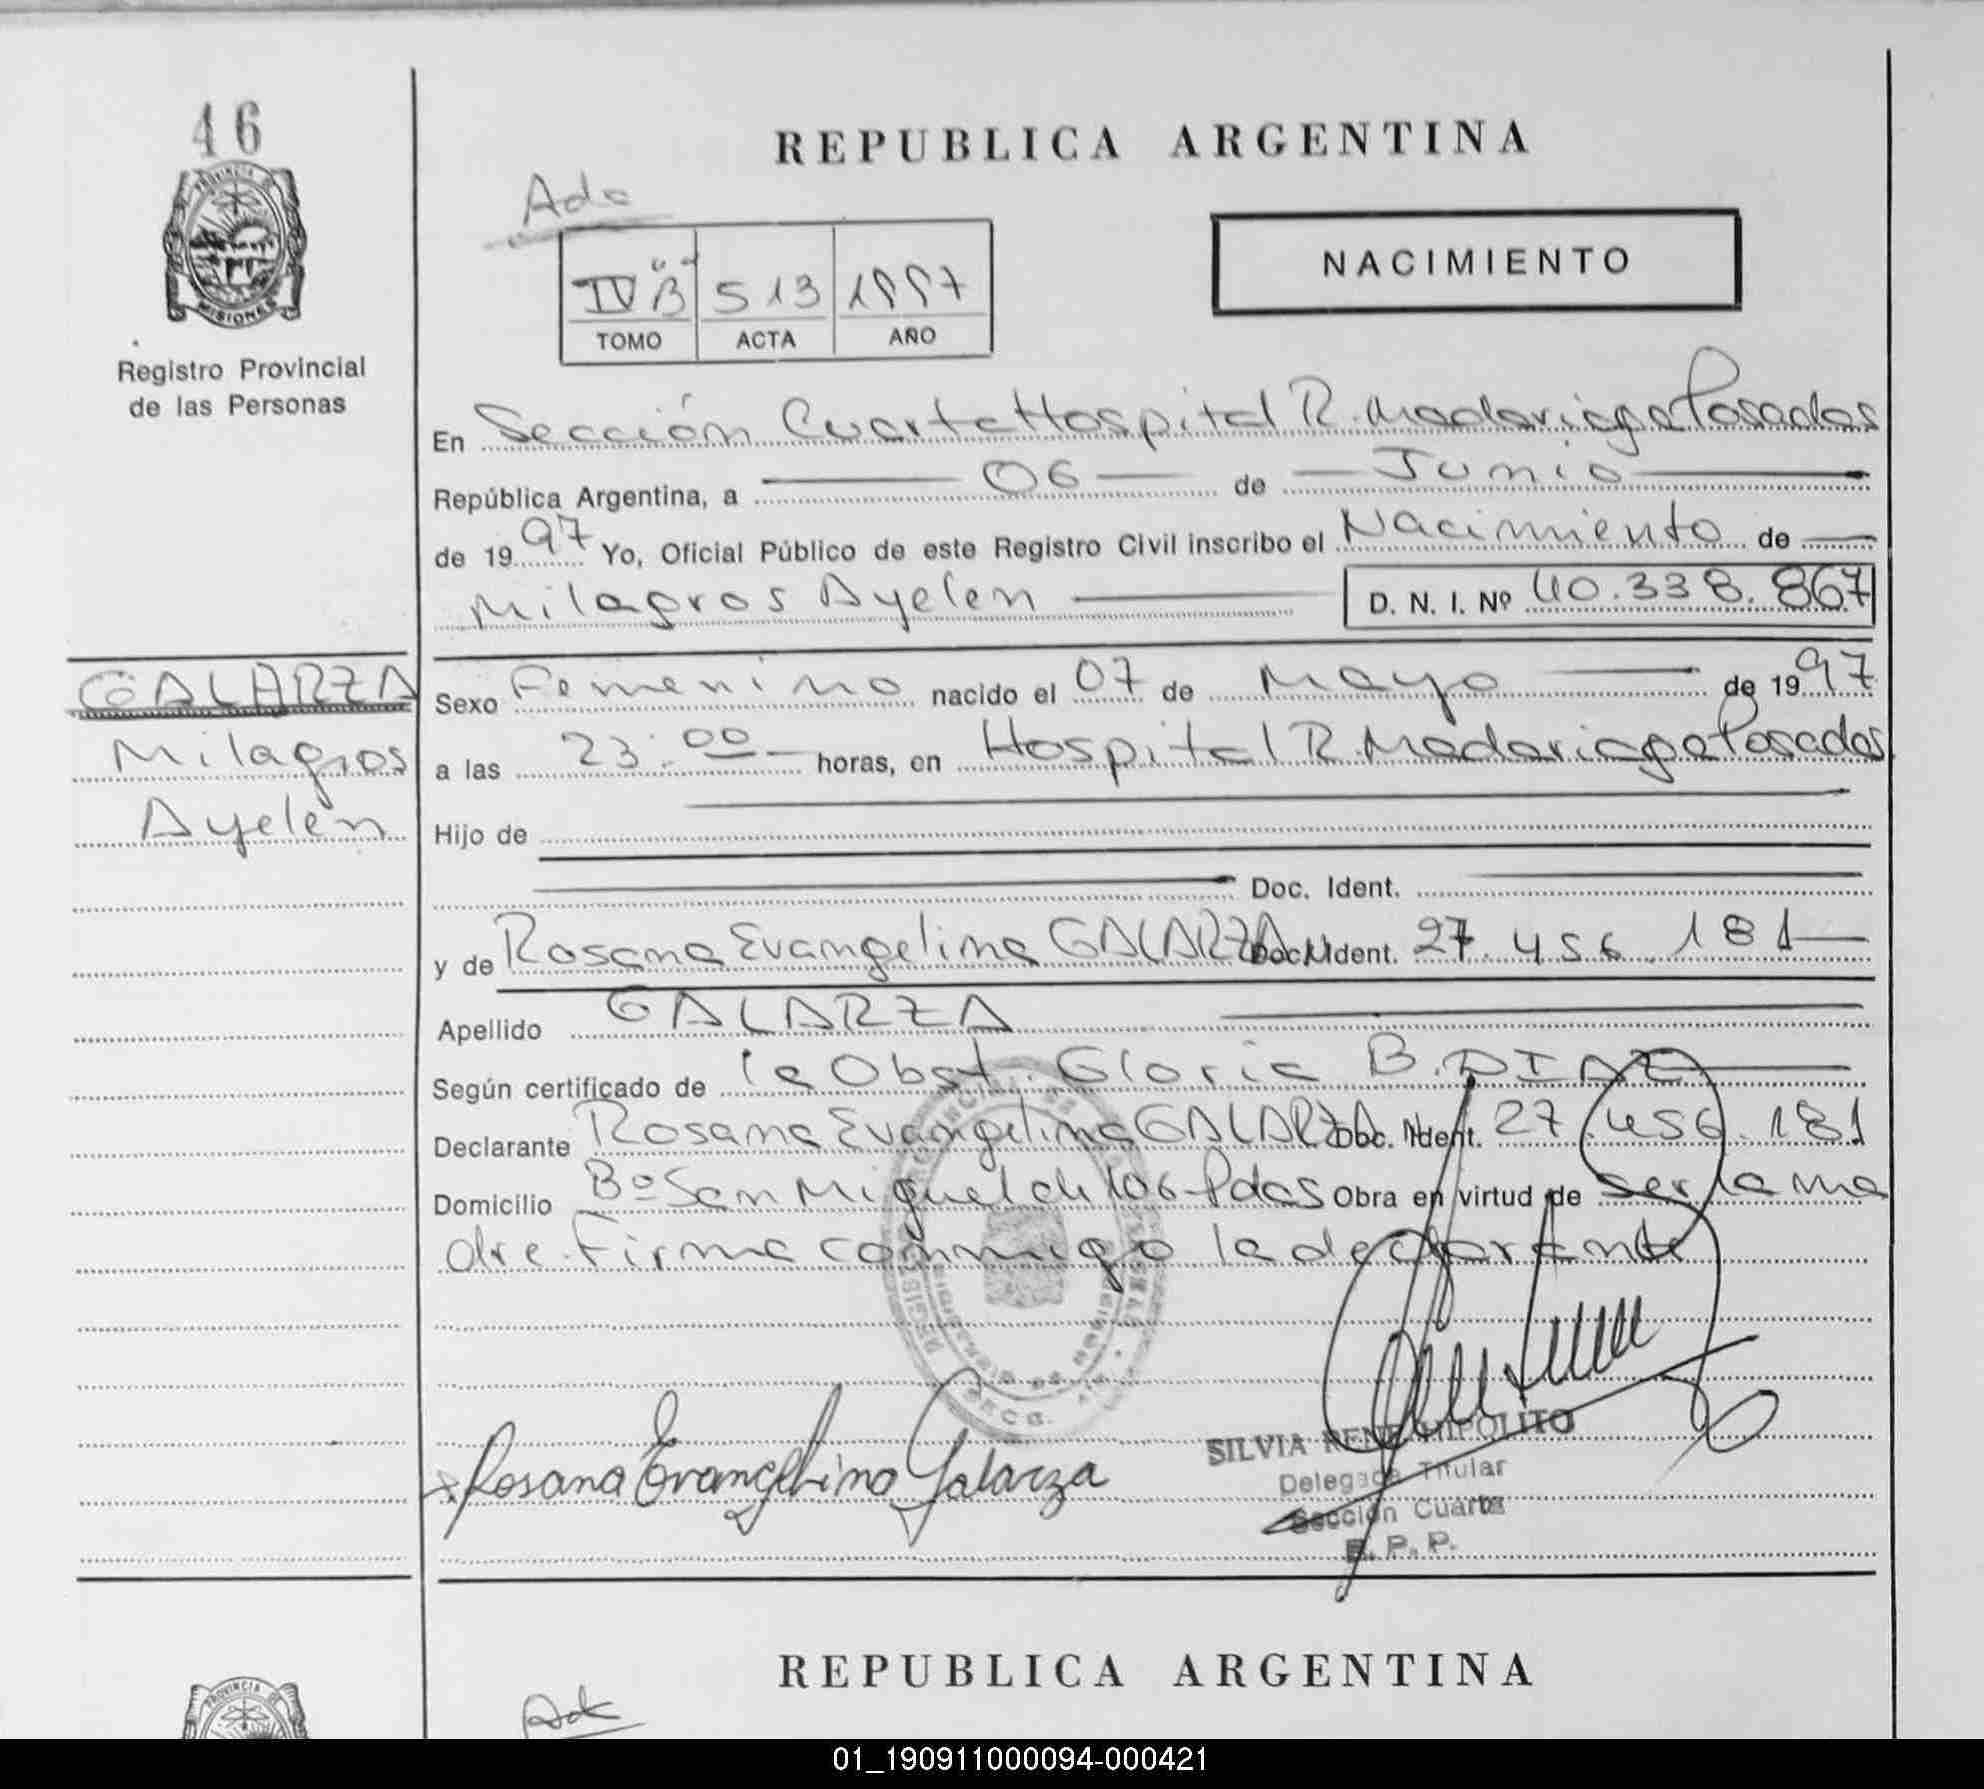 46
REPUBLICA ARGENTINA
PROVINCIA DE
MISIONES
Registro Provincial
de las Personas
NACIMIENTO
IV "B" 513 1997
TOMO ACTA AÑO
En Sección Cuarta Hospital R. Madariaga Posadas
República Argentina, a 06 de Junio
de 1997 Yo, Oficial Público de este Registro Civil inscribo el Nacimiento de
Milagros Ayelen D. N. I. Nº 40.338.867
GALARZA
Milagros
Ayelen
Sexo Femenino nacido el 07 de Mayo de 1997
a las 23:00 horas, en Hospital R. Madariaga Posadas
Hijo de
Doc. Ident.
y de Rosana Evangelina GALARZA Doc. Ident. 27.456.181
Apellido GALARZA
Según certificado de la Obst. Gloria B. DIAZ
Declarante Rosana Evangelina GALARZA Doc. Ident. 27.456.181
Domicilio Bº San Miguel ch 106-Pdas Obra en virtud de ser la ma
dre. Firma conmigo la declarante
Rosana Evangelina Galarza
SILVIA RENE HIPOLITO
Delegada Titular
Sección Cuarta
R. P. P.
REPUBLICA ARGENTINA
PROVINCIA DE
01_190911000094-000421